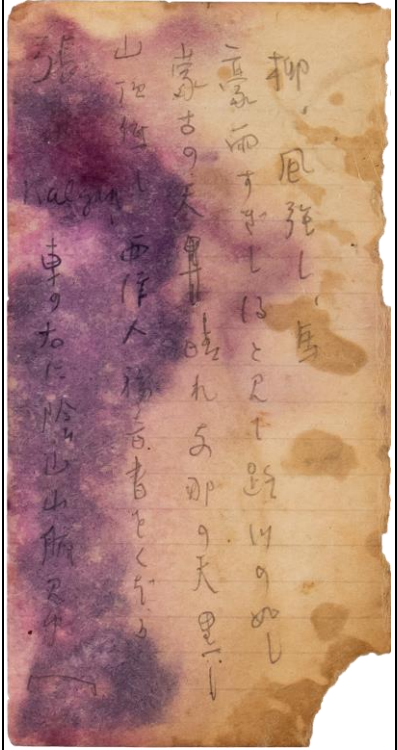 柳、風強し、馬
豪雨すぎし後と見て路川の如し
蒙古の天 晴れ支那の天黒し
山頂 西洋人 をくばる
張 Kalgan 車の右に陰山山脈見ゆ